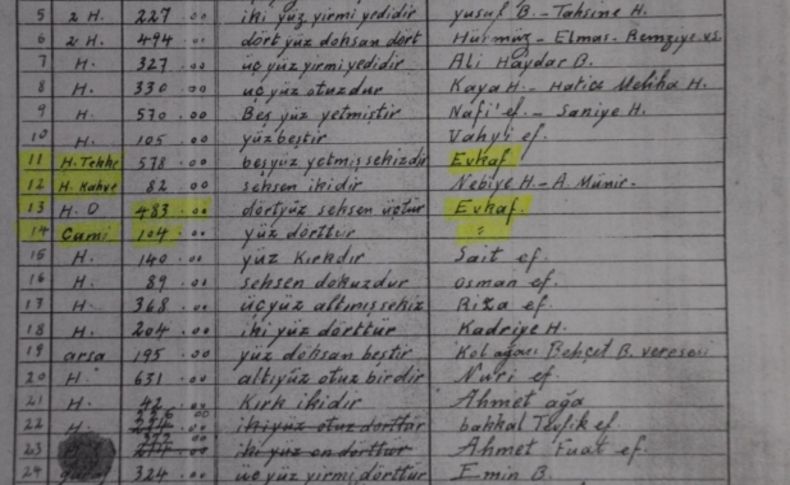 5 2 H. 227 .00 iki yüz yirmi yedidir yusuf B. - Tahsine H.
6 2 H. 494 .00 dört yüz doksan dört Hürmüz - Elmas - Remziye v.s.
7 H. 327 .00 üç yüz yirmi yedidir Ali Haydar B.
8 H. 330 .00 üç yüz otuzdur Kaya H. - Hatice Meliha H.
9 H. 570 .00 Beş yüz yetmiştir Nafi' ef. - Saniye H.
10 H. 105 .00 yüz beştir Vahyi ef.
11 H. Tekke 578 .00 beşyüz yetmiş sekizdir Evkaf
12 H. Kahve 82 .00 seksen ikidir Nebiye H. - A. Münir.
13 H. O 483 .00 dörtyüz seksen üçtür Evkaf.
14 Cami 104 .00 yüz dörttür "
15 H. 140 .00 yüz Kırkdır Sait ef.
16 H. 89 .00 seksen dokuzdur osman ef.
17 H. 368 .00 üçyüz altmış sekiz Rıza ef.
18 H. 204 .00 iki yüz dörttür Kadriye H.
19 arsa 195 .00 yüz doksan beştir Kolağası Behçet B. veresesi
20 H. 631 .00 altıyüz otuz birdir Nuri ef.
21 H. 42 .00 Kırk ikidir Ahmet ağa
22 H. 234 00 ikiyüz otuz dörttür bakkal Tevfik ef.
23 214 .00 iki yüz on dörttür Ahmet Fuat ef.
24 324 .00 üç yüz yirmi dörttür Emin B.